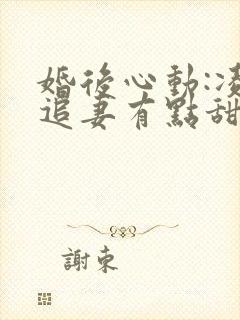 婚後心動:凌
追妻有點甜
謝東